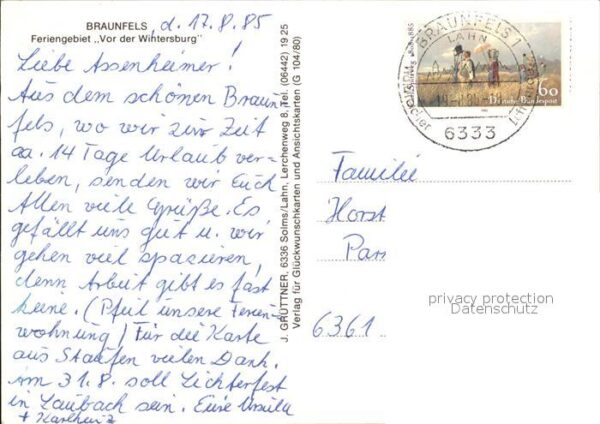 BRAUNFELS, d. 17.8.85
Feriengebiet „Vor der Wintersburg"
Liebe Assenheimer!
Aus dem schönen Braun
fels, wo wir zur Zeit
ca. 14 Tage Urlaub ver-
leben, senden wir Euch
Allen viele Grüße. Es
gefällt uns gut u. wir
gehen viel spazieren,
denn Arbeit gibt es fast
keine. (Pfeil unsere Ferien
wohnung) Für die Karte
aus Staufen vielen Dank.
im 31.8. soll Lichterfest
in Laubach sein. Eure Ursula
+ Karlheinz
J. GRÜTTNER, 6336 Solms/Lahn, Lerchenweg 8, Tel. (06442) 19 25
Verlag für Glückwunschkarten und Ansichtskarten (G 104/80)
BRAUNFELS 1
LAHN
6333
60
Deutsche Bundespost
Familie
Horst
Pars
6361
privacy protection
Datenschutz